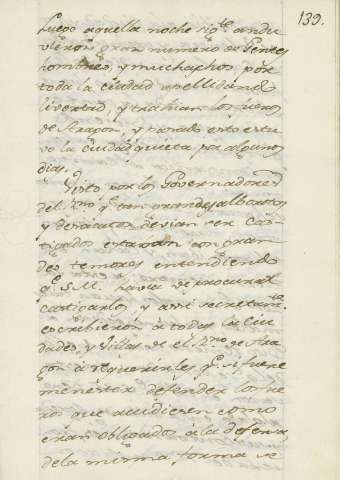 139.
Luego aquella noche sigte. andu
vieron gran numero de Gentes
hombres, y muchachos por
toda la ciudad apellidando
livertad, y trahian los fueros
de Aragon, y pasado esto estu
vo la ciudad quieta por algunos
dias.
Visto por los Governadores
del Rno. q. tan grandes alborotos
y desacatos devian ser cas
tigados estavan con gran
des temores entendiendo
qe. S. M. havia de procurar
castigarlos, y assi secretamte.
escribieron à todas las ciu
dades, y Villas de el Rno. de Ara
gon à requerirles qe. si fuere
menester defender los fue
ros que acudiesen como
eran obligados à la defensa,
de la misma forma se